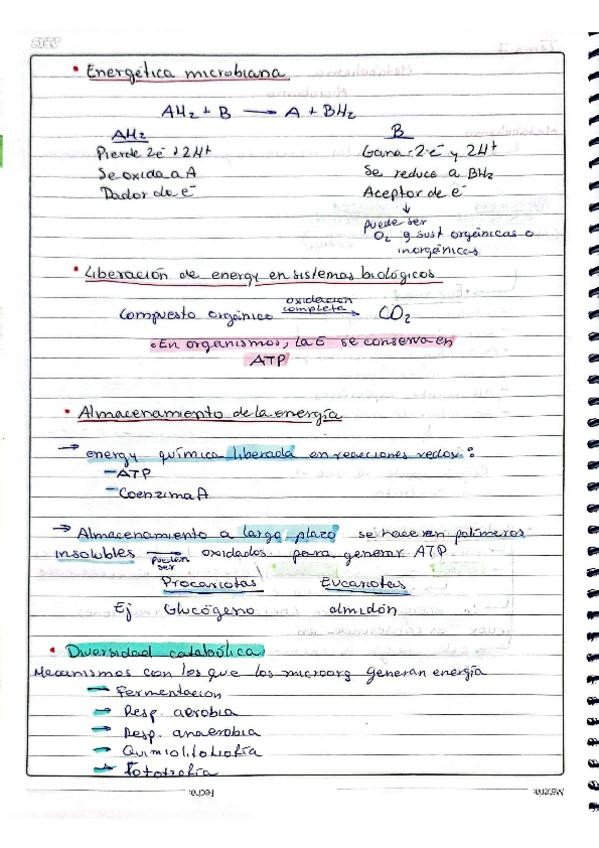 • Energética microbiana
AH₂ + B → A + BH₂
AH₂ B
Pierde 2e⁻ + 2H⁺ Gana: 2e⁻ y 2H⁺
Se oxida a A Se reduce a BH₂
Dador de e⁻ Aceptor de e⁻
↓
puede ser
O₂ sust orgánicas o
inorgánicas
• Liberación de energy en sistemas biológicos
Compuesto orgánico oxidación completa → CO₂
• En organismos, la E se conserva en
ATP
• Almacenamiento de la energía
→ energy química liberada en reacciones redox:
- ATP
- Coenzima A
→ Almacenamiento a largo plazo se hace en polímeros
insolubles → pueden ser oxidados para generar ATP
Procariotas Eucariotas
Ej Glucógeno almidón
• Diversidad catabólica
Mecanismos con los que los microorg generan energía
→ Fermentación
→ Resp. aerobia
→ Resp. anaerobia
→ Quimiolitotrofía
→ Fototrofía
Fecha: Materia: